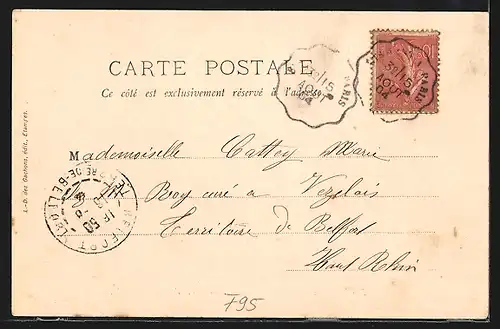 CARTE POSTALE
Ce côté est exclusivement réservé à l'adresse
Mademoiselle Cattey Marie
Roy curé à Vézelois
Territoire de Belfort
Haut Rhin
L.-D. des Gachons, édit., Etampes.
PARIS
15
AOUT
04
PARIS
15
AOUT
04
BELFORT
TERRE DE-BELFORT
F95